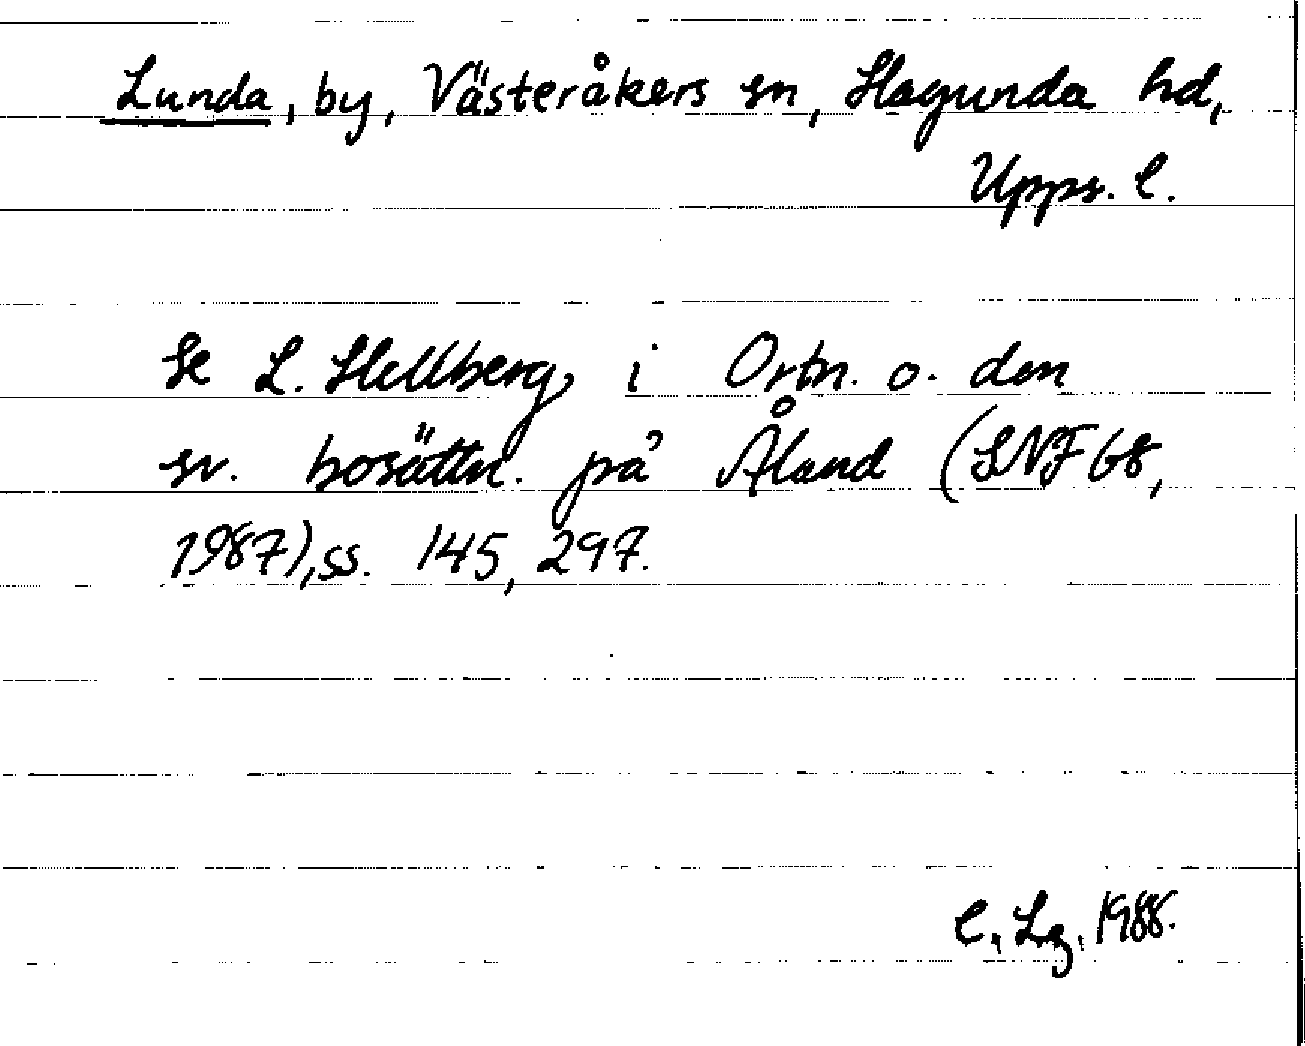 Lunda, by, Västeråkers sn, Hagunda hd,
Upps. l.
Se L. Hellberg, i Ortn. o. den
sv. bosättn. på Åland (SNF 68,
1987), ss. 145, 297.
C. Lg, 1988.